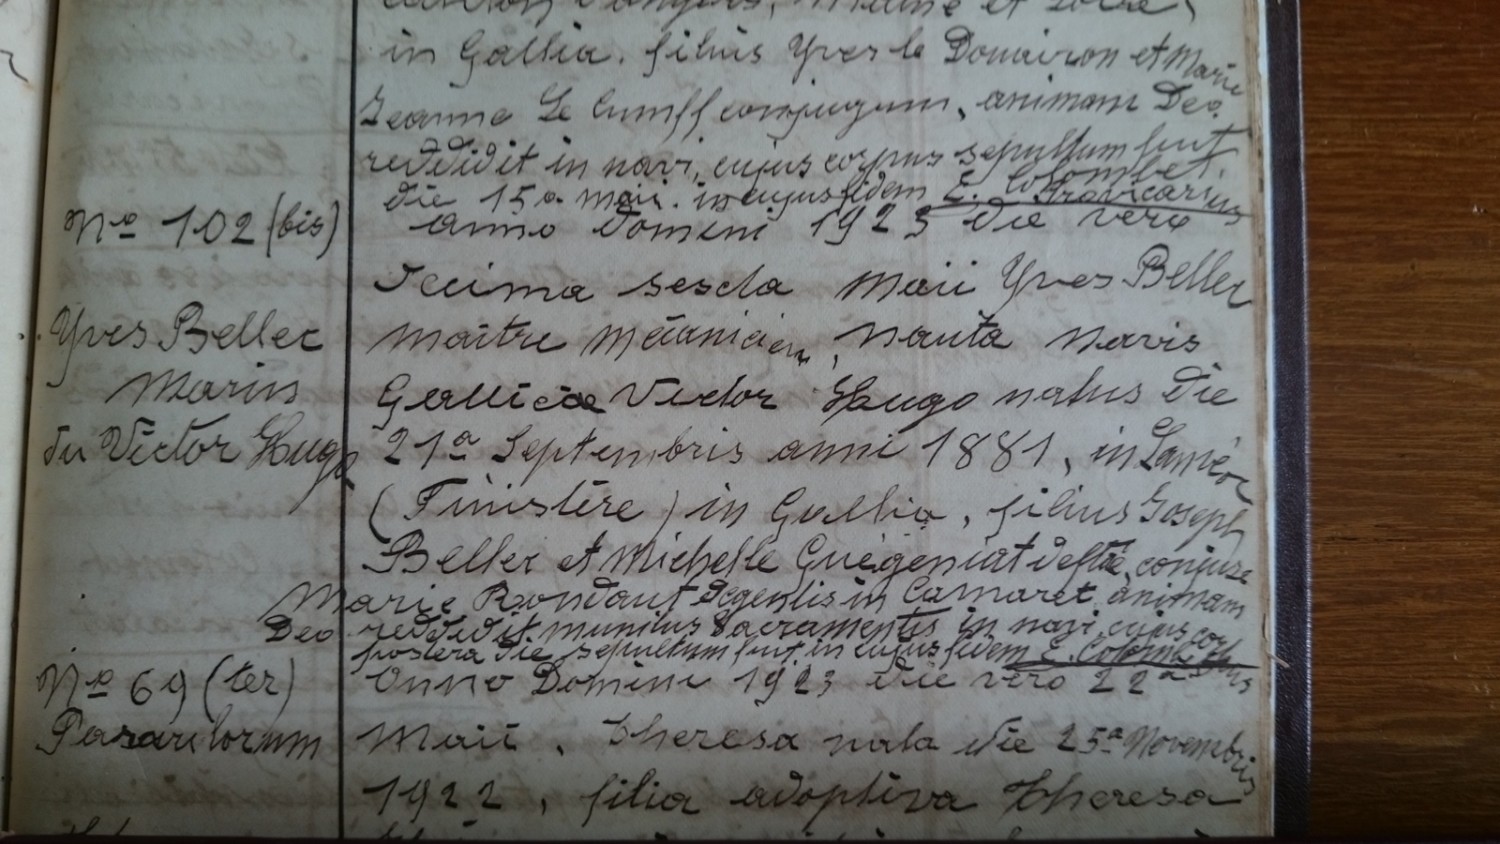 in Gallia. filius Yves le Douairon et Marie
Jeanne Le Cunff conjugum, animam Deo
reddidit in navi, cujus corpus sepultum fuit
die 15a maii. in cujus fidem E. Colombet.
Provicarius
No 102 (bis)
anno Domini 1923 die vero
decima sexta Maii Yves Bellec
Yves Bellec
maître mécanicien, nauta navis
Marius
Gallicae Victor Hugo natus die
du Victor Hugo
21a Septembris anni 1881, in
(Finistère) in Gallia, filius Joseph
Bellec et Michelle Quégéniat defta, conjuge
Marie Rondaut degentis in Camaret, animam
Deo reddidit munitus Sacramentis in navi cujus corpus
postera die sepultum fuit, in cujus fidem E. Colombet
No 69 (ter)
Anno Domini 1923 die vero 22a
Parvulorum
Maii, Theresa nata die 25a Novembris
1922, filia adoptiva Theresa